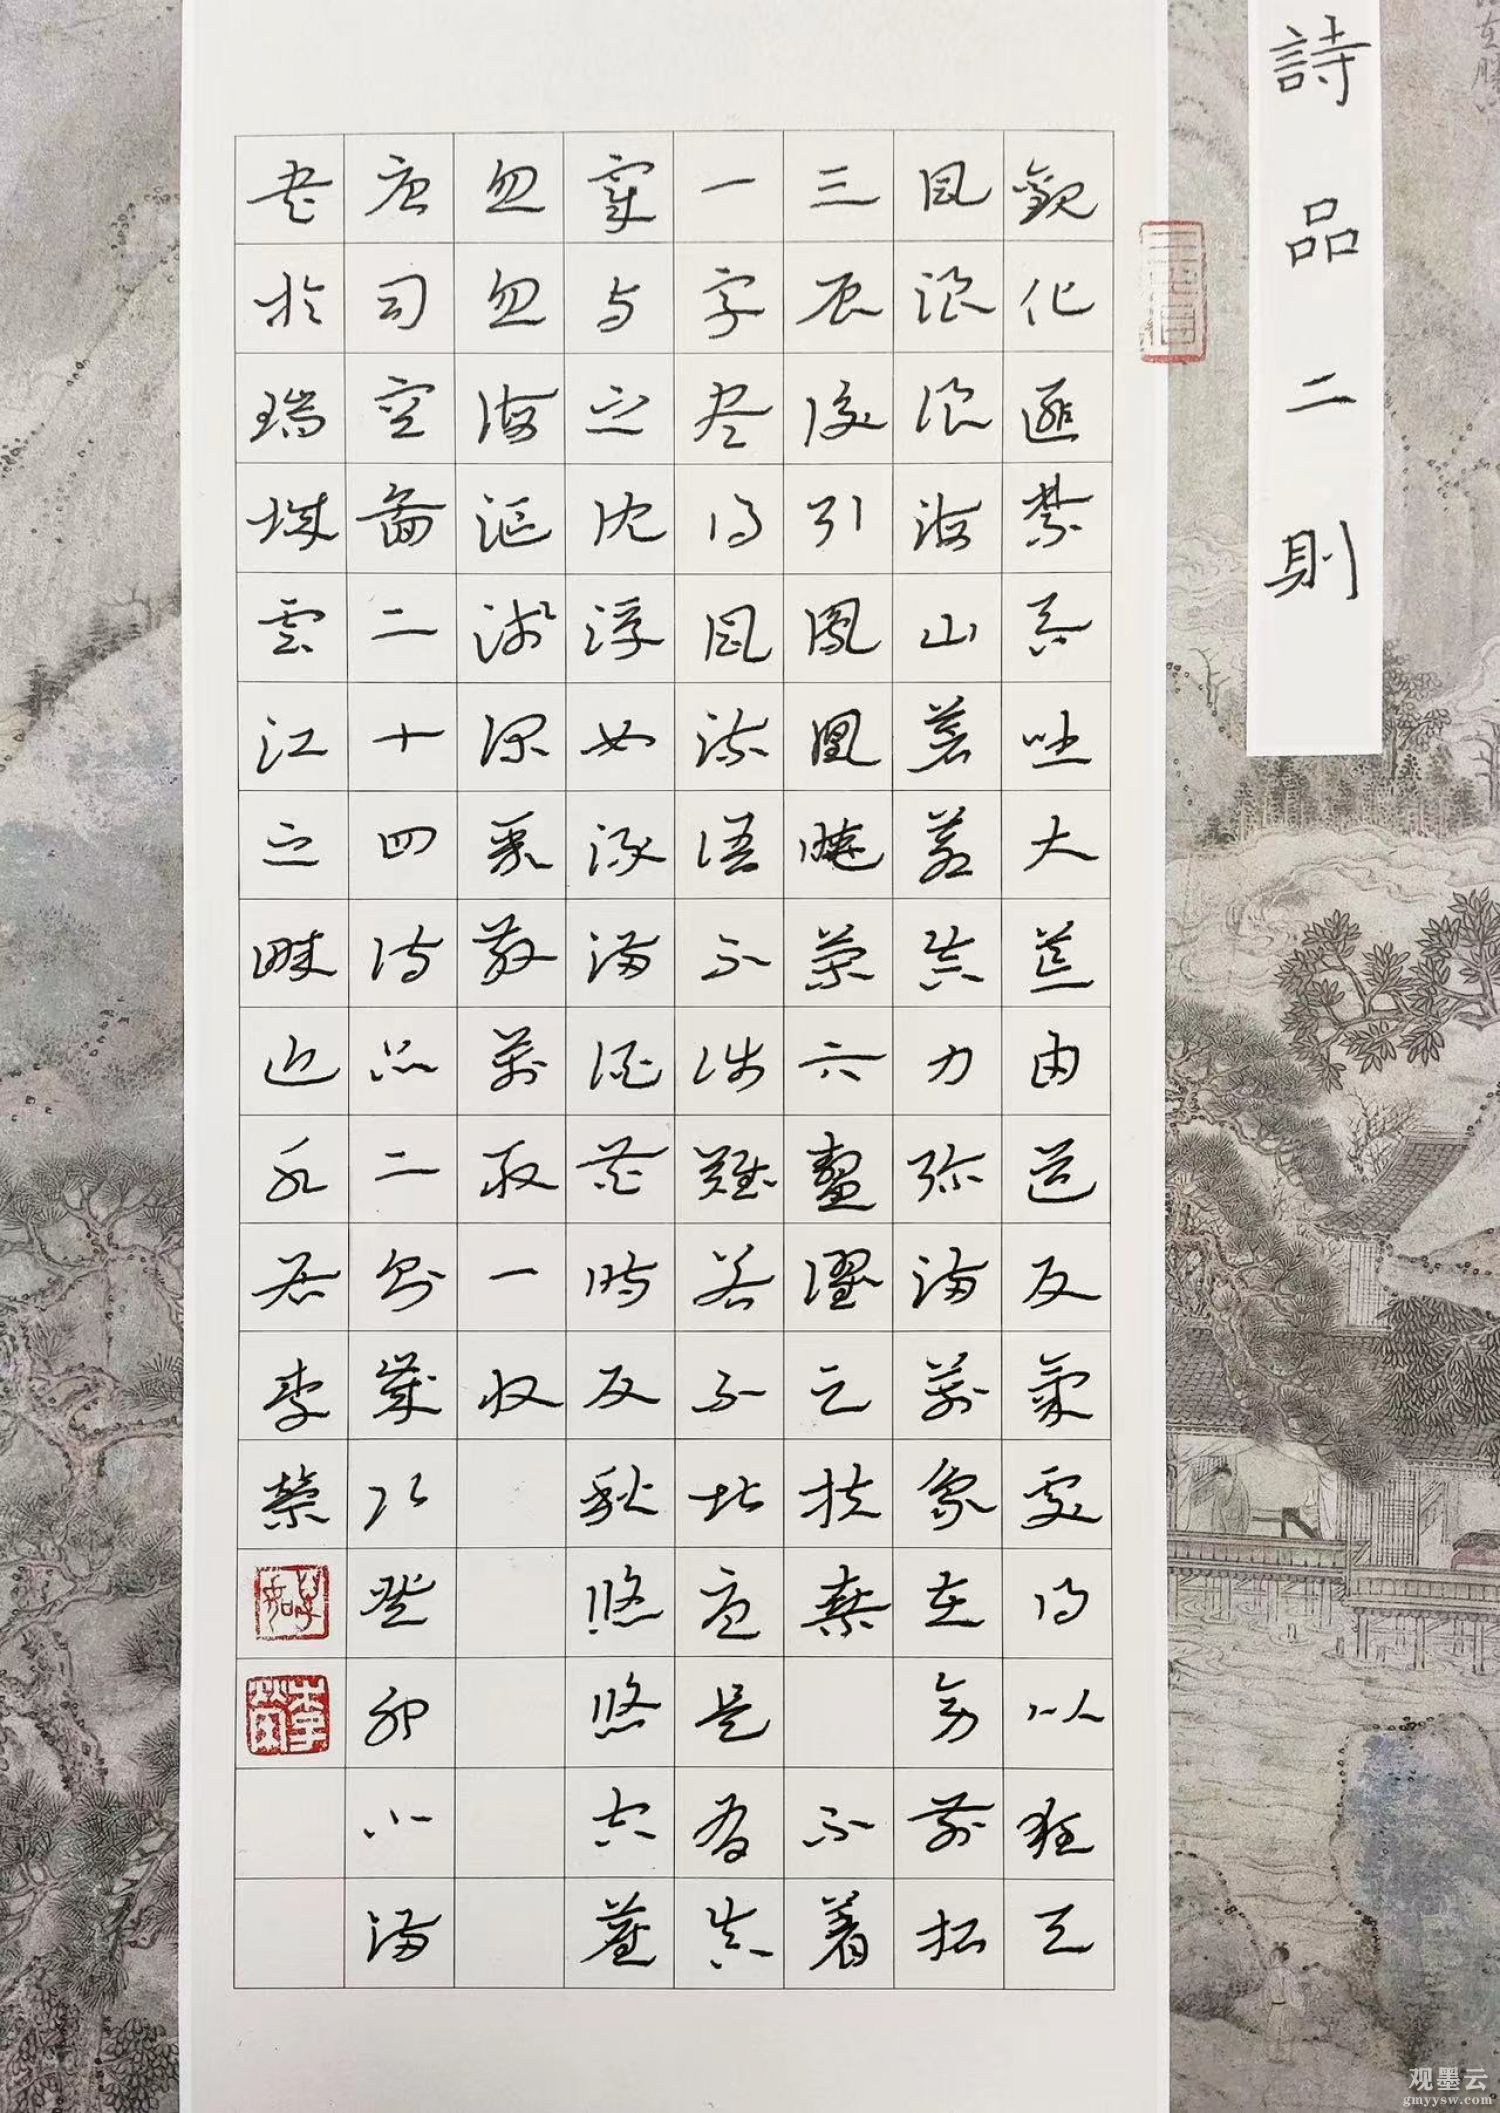 詩品二則
觀化匪禁吞吐大荒由道反氣處得以狂天
風浪浪海山蒼蒼真力弥滿萬象在旁前招
三辰後引鳳凰曉策六鰲濯足扶桑 不着
一字尽得風流語不涉難若不堪憂是有真
宰与之沈浮如渌滿酒花時反秋悠悠空塵
忽忽海漚淺深聚散萬取一收
唐司空圖二十四詩品二則歲次癸卯小滿
書於瑞城雲江之畔近水居李榮
李榮
观墨云
gmyysw.com